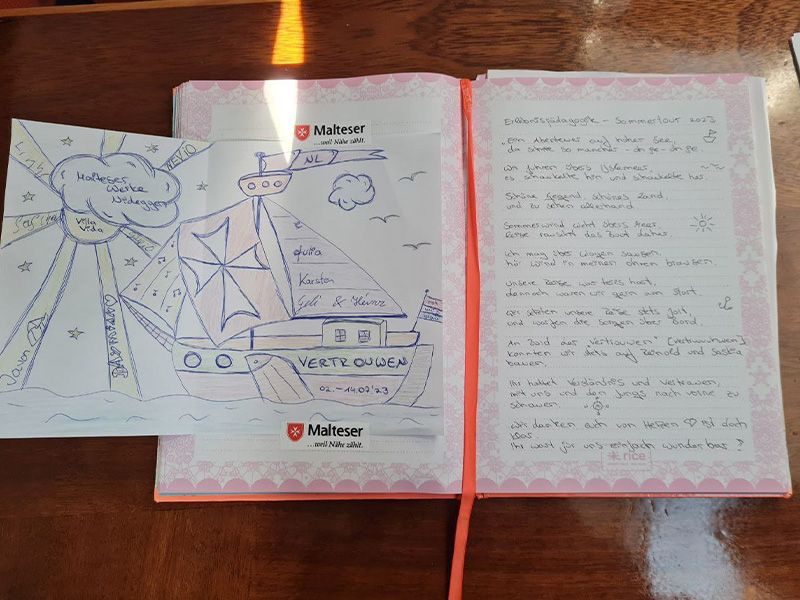 Malteser
...weil Nähe zählt.
NL
Malteser
Werke
Nideggen
Villa
Vida
KEVIO
Julia
Karsten
Geli & Heinz
VERTROUWEN
02. - 14.07.'23
Malteser
...weil Nähe zählt.
Erlebnispädagogik - Sommertour 2023
"Ein Abenteuer auf hoher See,
da störte so mancher - oh je - oh je.
Wir fuhren übers Ijselmeer,
es schaukelte hin und schaukelte her.
Schöne Gegend, schönes Land,
und zu sehen allerhand.
Sommerwind weht übers Meer
leise rauscht das Boot daher.
Ich mag über Wogen sausen,
hör Wind in meinen Ohren brausen.
Unsere Reise war teils hart,
dennoch waren wir gern am Start.
Wir setzten unsere Reise stets fort,
und warfen die Sorgen über Bord.
An Bord der "Vertrouwen" (Vertrauen)
konnten wir stets auf Reinold und Saskia
bauen.
Ihr habet Verständnis und Vertrauen,
mit uns und den Jungs nach vorne zu
schauen.
Wir danken euch von Herzen ♡ ist doch
klar,
Ihr wart für uns einfach wunderbar!
rice